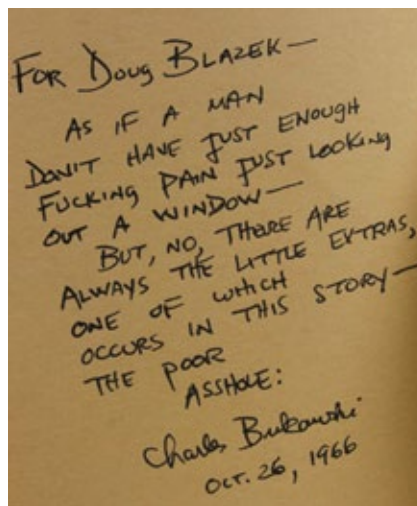 FOR DOUG BLAZEK—
AS IF A MAN
DON'T HAVE JUST ENOUGH
FUCKING PAIN JUST LOOKING
OUT A WINDOW—
BUT, NO, THERE ARE
ALWAYS THE LITTLE EXTRAS,
ONE OF WHICH
OCCURS IN THIS STORY—
THE POOR
ASSHOLE:
Charles Bukowski
OCT. 26, 1966